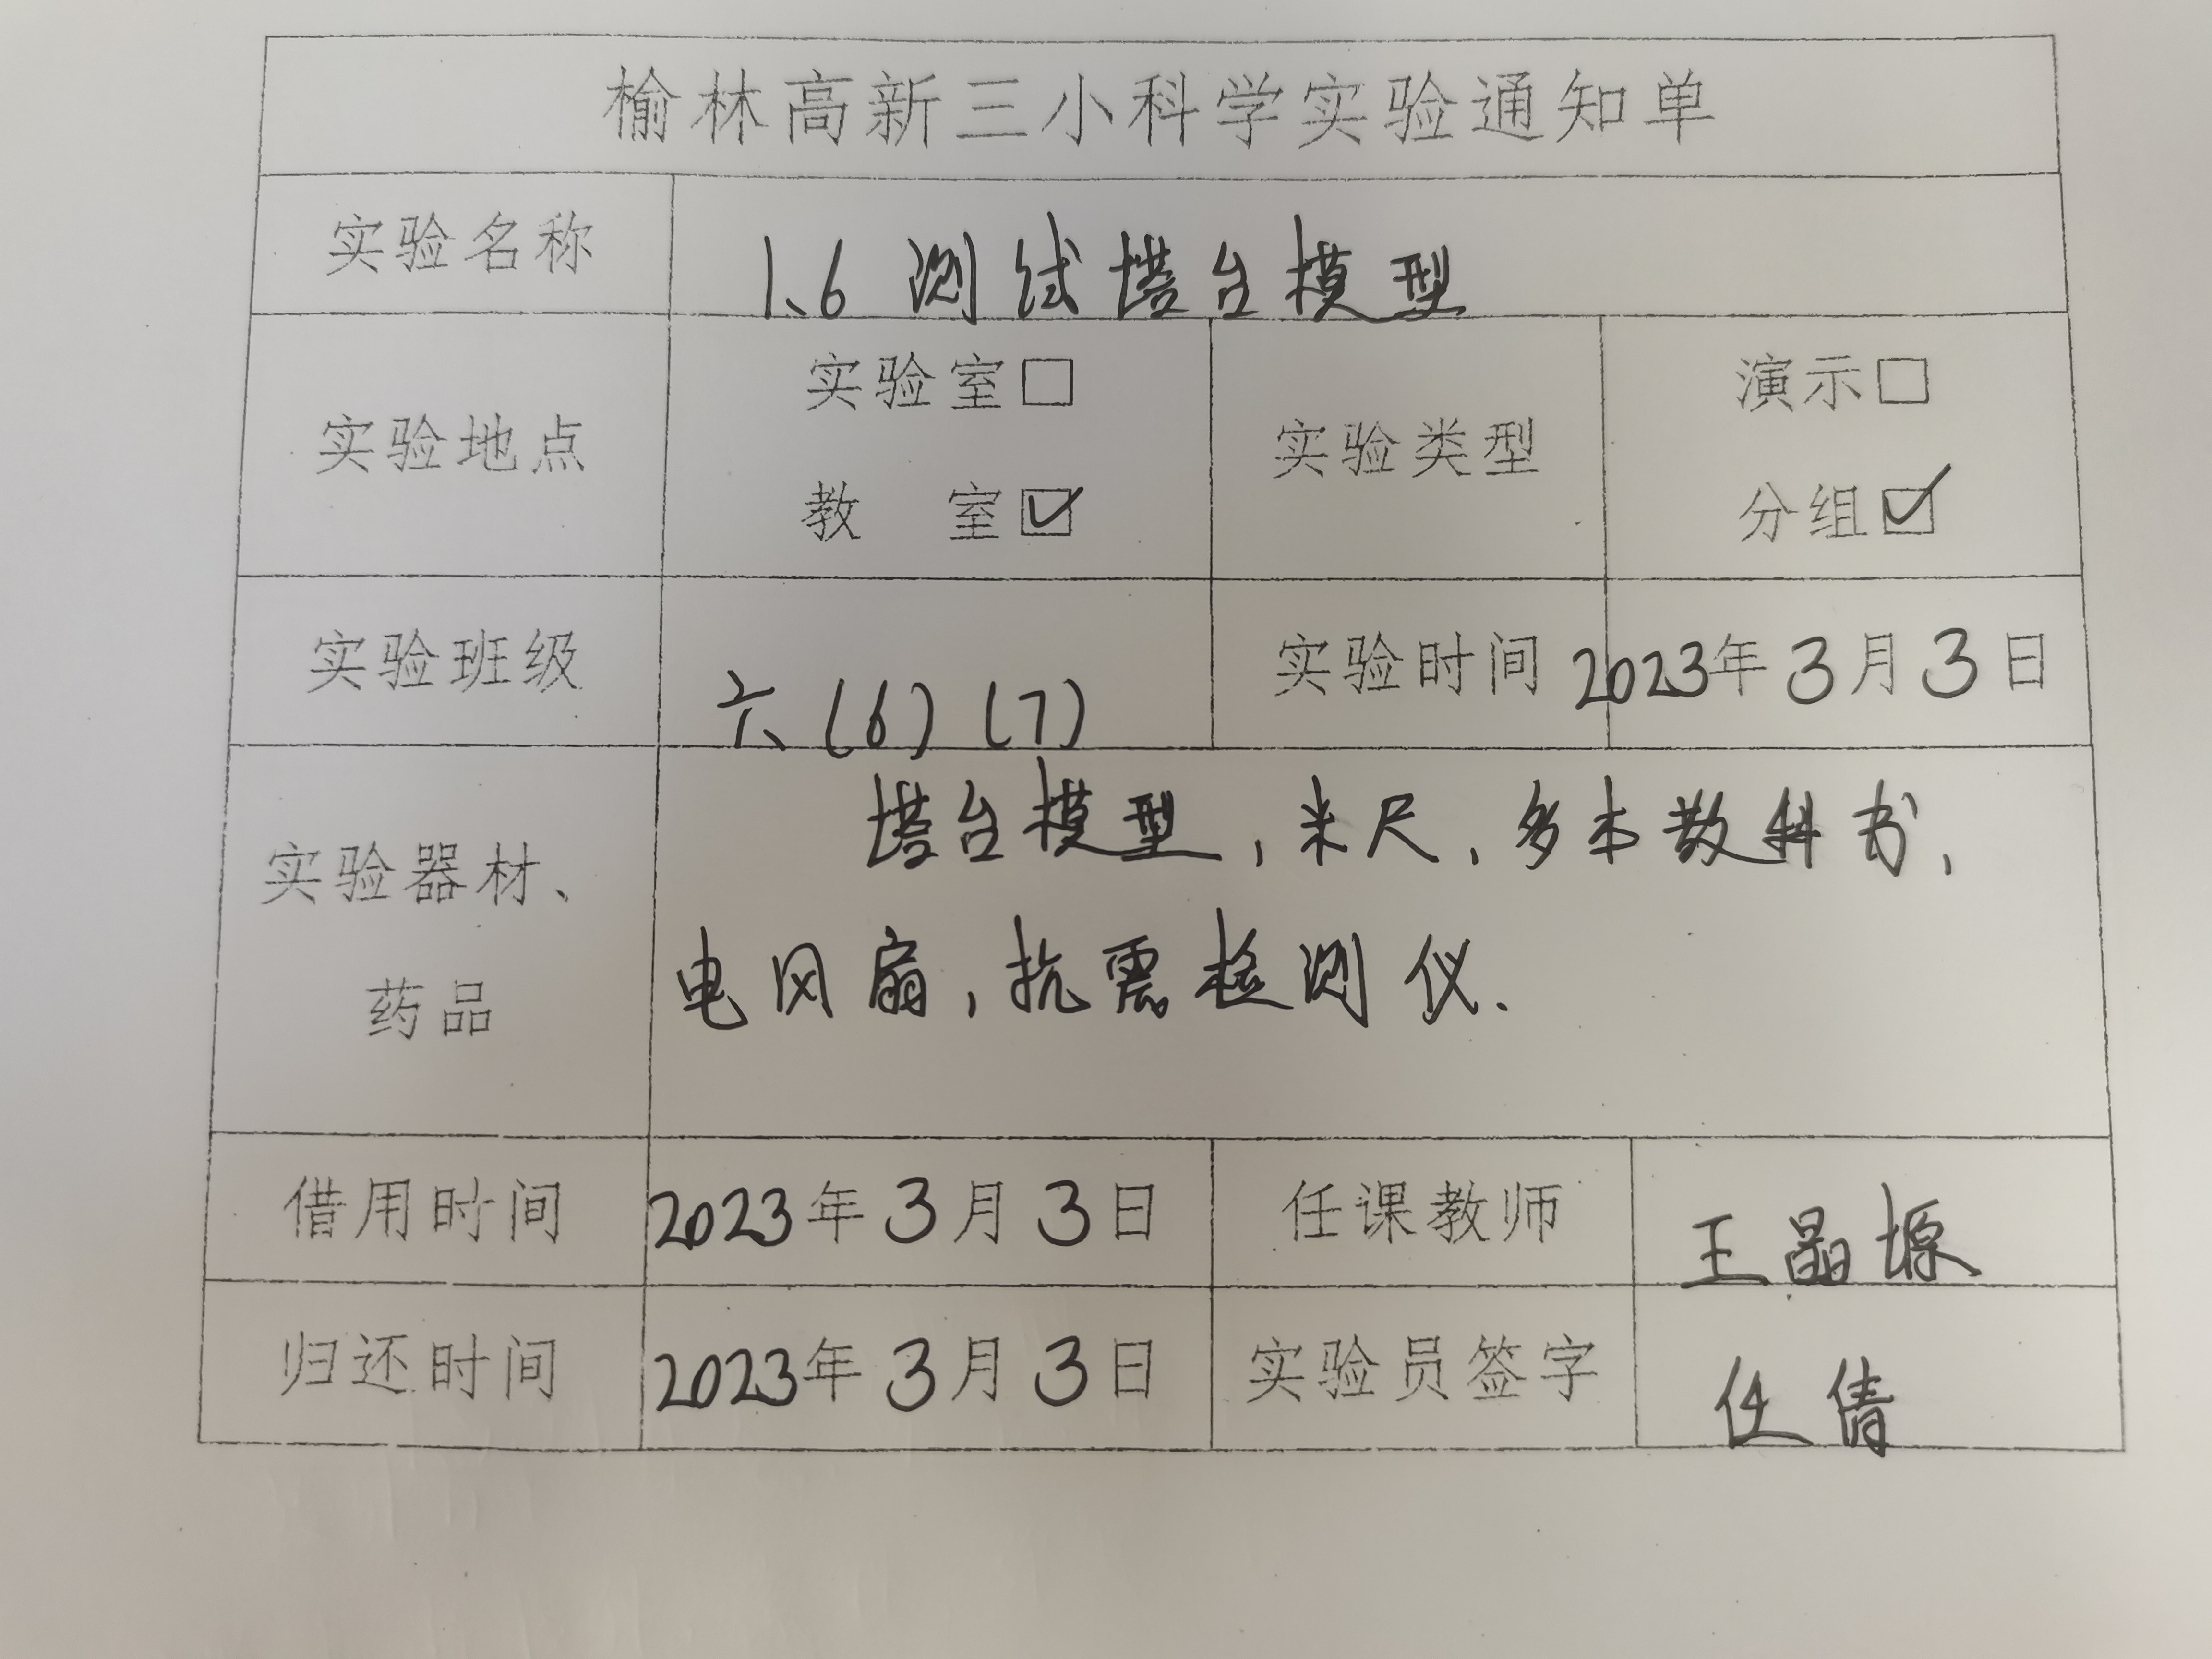 榆林高新三小科学实验通知单
实验名称 1、6 测试塔台模型
实验地点 实验室□ 教 室☑ 实验类型 演示□ 分组☑
实验班级 六(6)(7) 实验时间 2023年3月3日
实验器材、药品 塔台模型,米尺,多本教科书,
电风扇,抗震检测仪.
借用时间 2023年3月3日 任课教师 王晶塬
归还时间 2023年3月3日 实验员签字 任倩